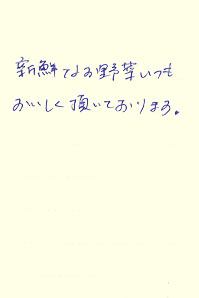 新鮮なお野菜いつも
おいしく頂いております。